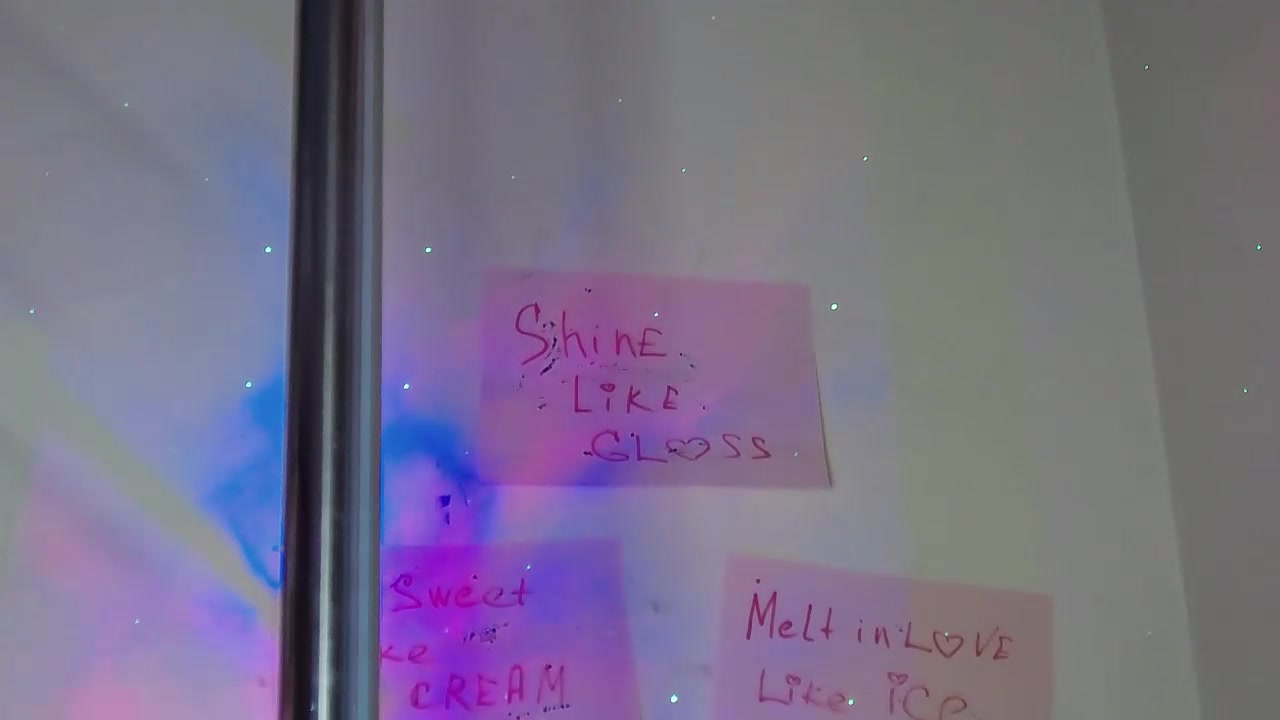 ShinE
LiKE
GLOSS
Sweet
ke
CREAM
Melt in LOVE
Like ice